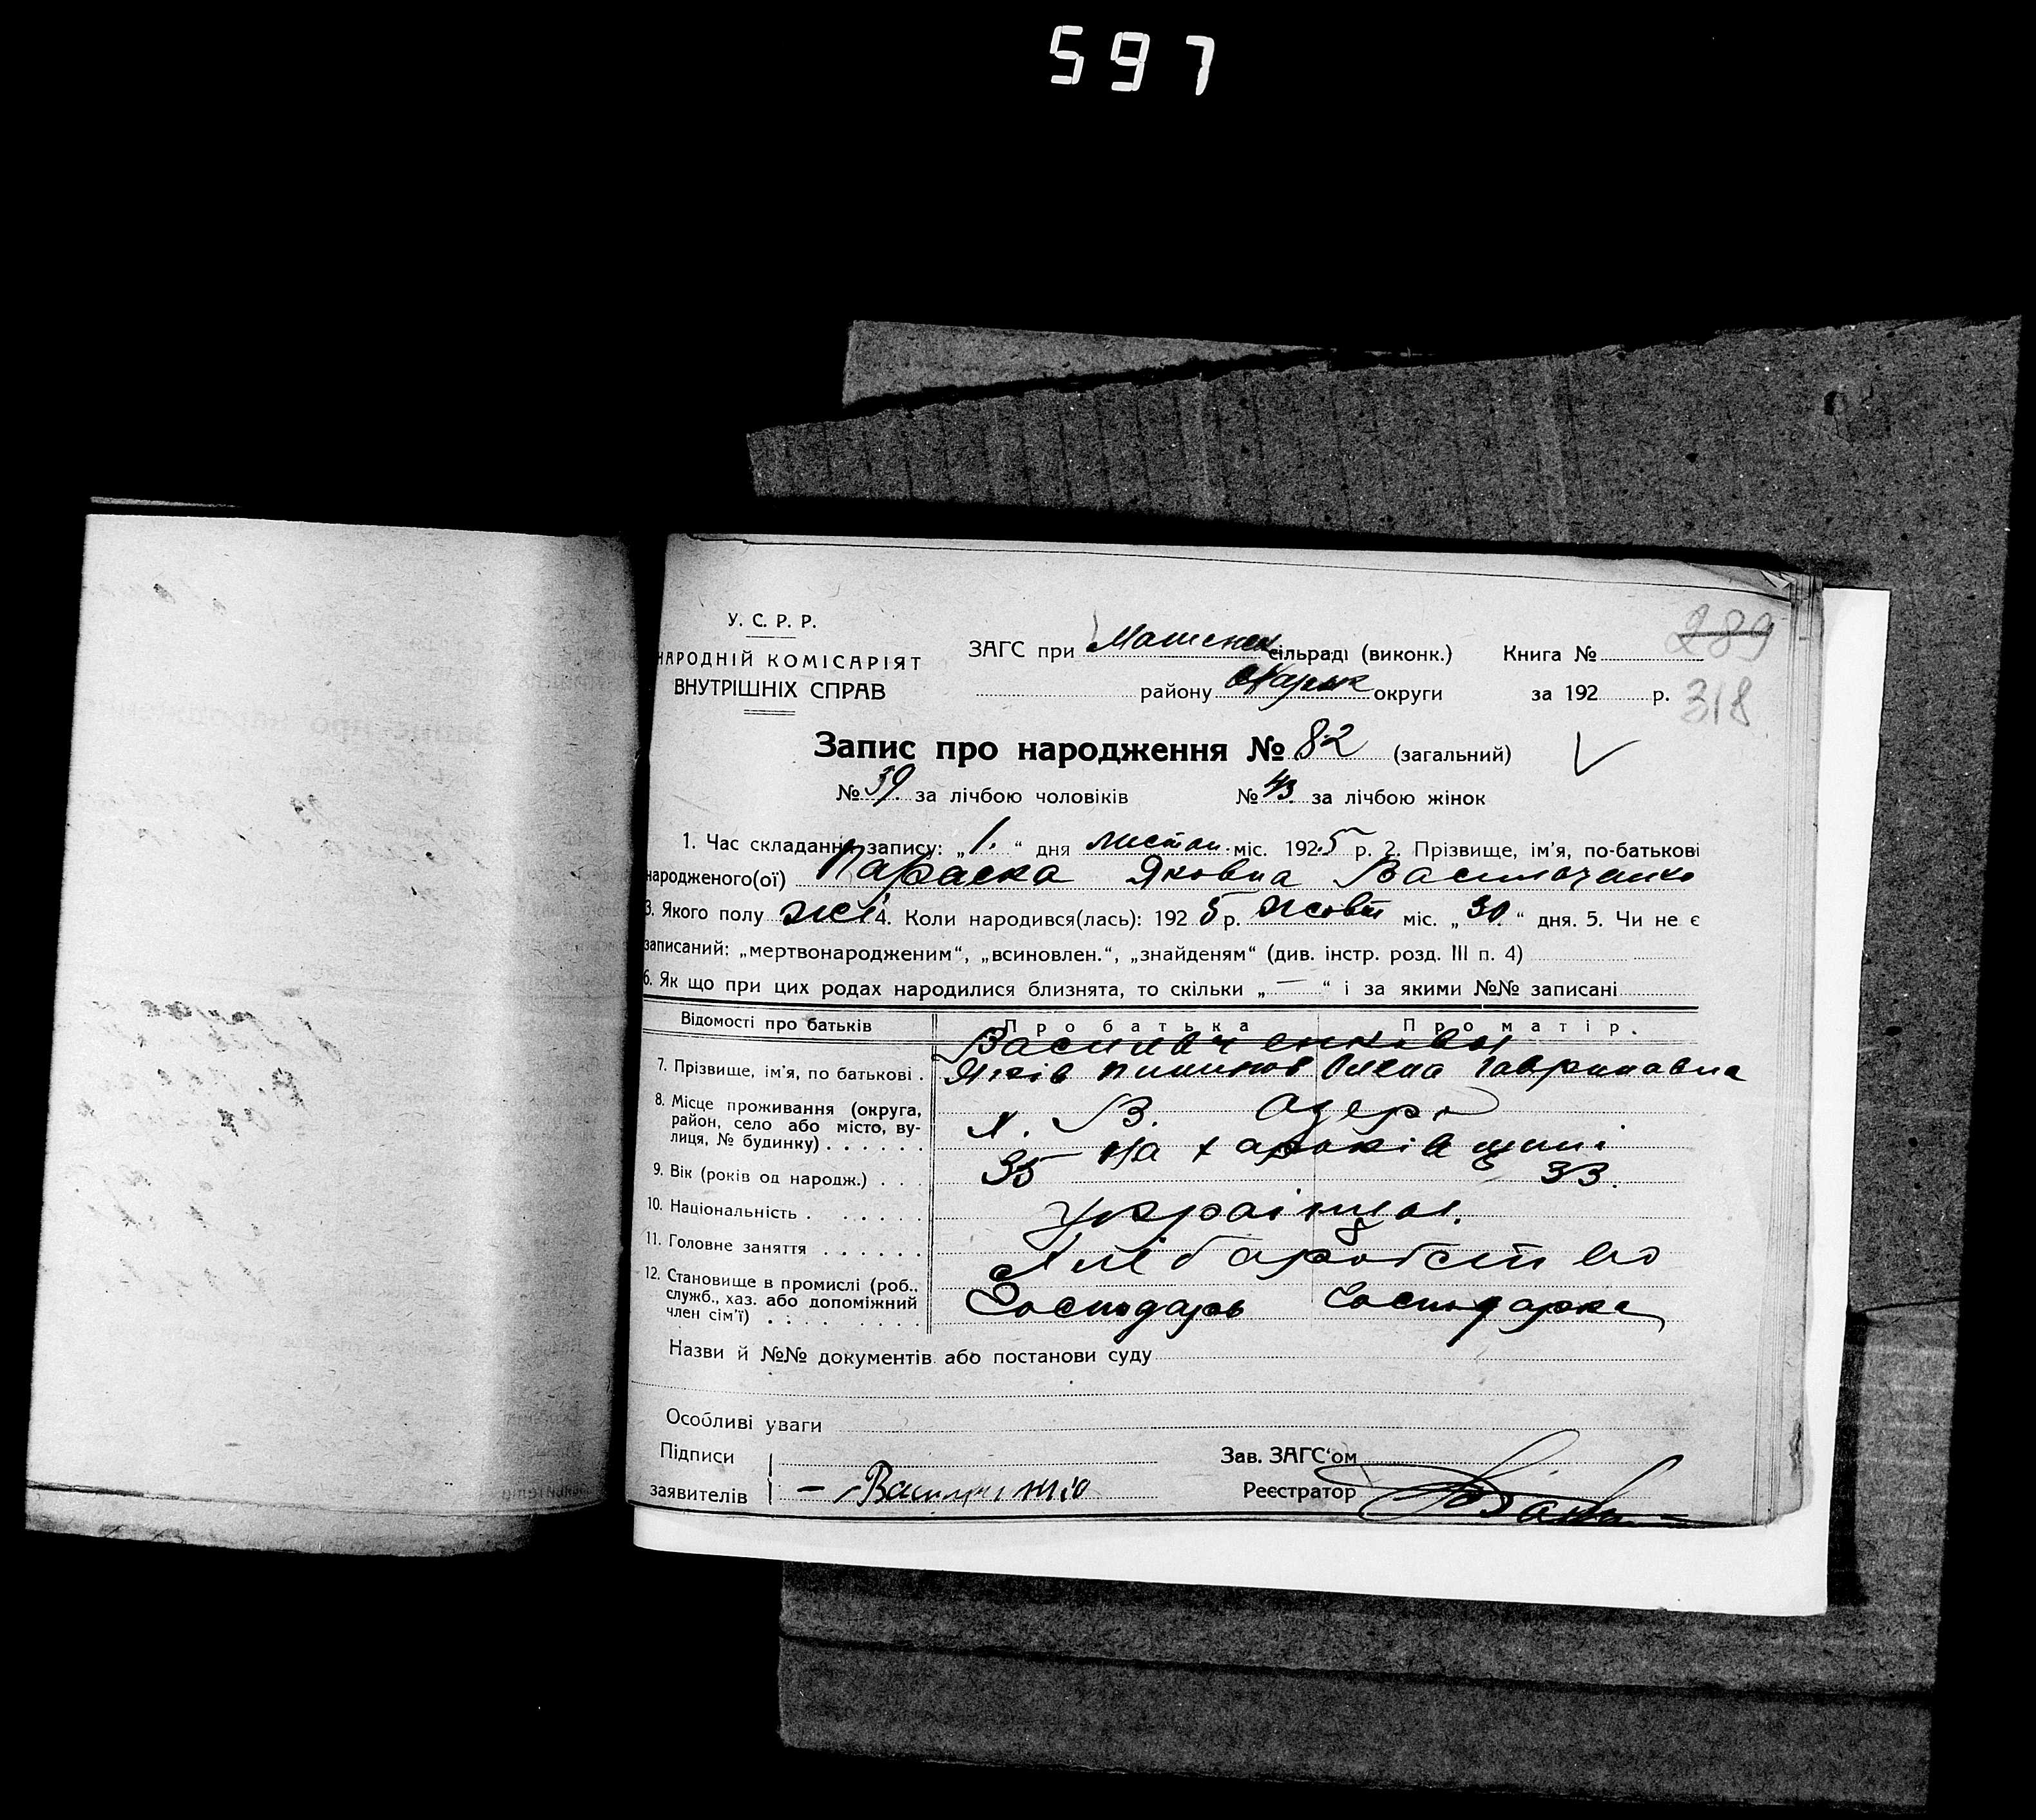 597
289
318
У. С. Р. Р.
НАРОДНІЙ КОМІСАРІЯТ
ВНУТРІШНІХ СПРАВ
ЗАГС при сільраді (виконк.) Книга №
району Харьк округи за 192 р.
Запис про народження № 82 (загальний)
№ 39. за лічбою чоловіків № 43. за лічбою жінок
1. Час складання запису: „ 1. “ дня листоп. міс. 1925 р. 2. Прізвище, ім'я, по-батькові
народженого(ої) Параска Яковна Васильченко
3. Якого полу жі 4. Коли народився(лась): 192 5 р. жовт міс. „ 30. “ дня. 5. Чи не є
записаний: „мертвонародженим“, „всиновлен.“, „знайденям“ (див. інстр. розд. III п. 4)
6. Як що при цих родах народилися близнята, то скільки „ — “ і за якими №№ записані
Відомості про батьків Про батька Про матір.
Васильченкови
7. Прізвище, ім'я, по батькові . Яків Олена Гавриловна
8. Місце проживання (округа, район, село або місто, вулиця, № будинку) . . . . . . Х. В. Озеро
на харьківщині
9. Вік (років од народж.) . . . 35 33.
10. Національність . . . . . . . українці.
11. Головне заняття . . . . . . Хліборобство
12. Становище в промислі (роб., служб., хаз. або допоміжний член сім'ї) . . . . . . . . Господарь Господарка
Назви й №№ документів або постанови суду
Особливі уваги
Підписи Зав. ЗАГС'ом
заявителів – Реєстратор